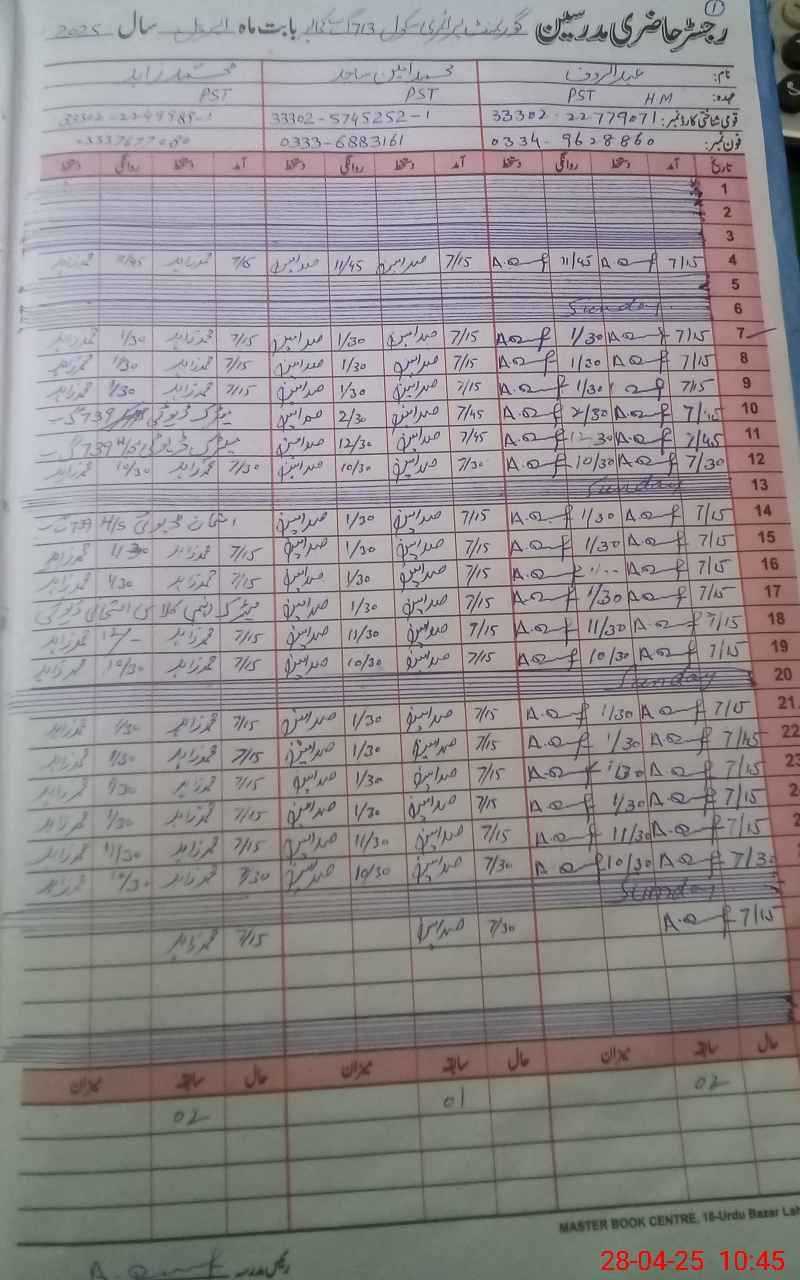 ①
رجسٹر حاضری مدرسین گورنمنٹ پرائمری سکول 713 گ ب بابت ماہ اپریل سال 2025
نام: عبدالرؤف محمد امین ساجد محمد زاہد
عہدہ: PST H M PST PST
قومی شناختی کارڈ نمبر: 33302-2277907-1 33302-5745252-1
فون نمبر: 0334-9628860 0333-6883161
تاریخ آمد دستخط روانگی دستخط آمد دستخط روانگی دستخط آمد دستخط روانگی دستخط
1
2
3
4 7/15 11/45 7/15 محمد امین 11/45 محمد امین محمد زاہد 11/45 محمد زاہد
5
6 Sunday
7 7/15 1/30 7/15 محمد امین 1/30 محمد امین 7/15 محمد زاہد 1/30 محمد زاہد
8 7/15 1/30 7/15 محمد امین 1/30 محمد امین 7/15 محمد زاہد 1/30 محمد زاہد
9 7/15 1/30 7/15 محمد امین 1/30 محمد امین 7/15 محمد زاہد 1/30 محمد زاہد
10 2/30 7/45 محمد امین 2/30 محمد امین میٹرک ڈیوٹی 739 گ ب
11 7/45 12-30 7/45 محمد امین 12/30 محمد امین میٹرک ڈیوٹی H/S 739 گ ب
12 7/30 10/30 7/30 محمد امین 10/30 محمد امین 7/30 محمد زاہد 10/30 محمد زاہد
13 Sunday
14 7/15 1/30 7/15 محمد امین 1/30 محمد امین امتحان ڈیوٹی H/S 739 گ ب
15 7/15 1/30 7/15 محمد امین 1/30 محمد امین 7/15 محمد زاہد محمد زاہد
16 7/15 7/15 محمد امین 1/30 محمد امین 7/15 محمد زاہد 1/30 محمد زاہد
17 7/15 1/30 7/15 محمد امین 1/30 محمد امین میٹرک نہم کلاس امتحانی ڈیوٹی
18 7/15 11/30 7/15 محمد امین 11/30 محمد امین 7/15 محمد زاہد 12/- محمد زاہد
19 7/15 10/30 7/15 محمد امین 10/30 محمد امین 7/15 محمد زاہد 10/30 محمد زاہد
20 Sunday
21 7/15 1/30 7/15 محمد امین 1/30 محمد امین 7/15 محمد زاہد 1/30 محمد زاہد
22 1/30 7/15 محمد امین 1/30 محمد امین 7/15 محمد زاہد 1/30 محمد زاہد
23 7/15 1/30 7/15 محمد امین 1/30 محمد امین 7/15 محمد زاہد 1/30 محمد زاہد
7/15 1/30 7/15 محمد امین 1/30 محمد امین 7/15 محمد زاہد 1/30 محمد زاہد
7/15 11/30 7/15 محمد امین 11/30 محمد امین 7/15 محمد زاہد 11/30 محمد زاہد
7/30 10/30 7/30 محمد امین 10/30 محمد امین 7/30 محمد زاہد 10/30 محمد زاہد
Sunday
7/15 7/30 محمد امین 7/15 محمد زاہد
حال سابقہ میزان حال سابقہ میزان حال سابقہ میزان
02 01 02
MASTER BOOK CENTRE, 16-Urdu Bazar Lah
رئیس مدرسہ
28-04-25 10:45